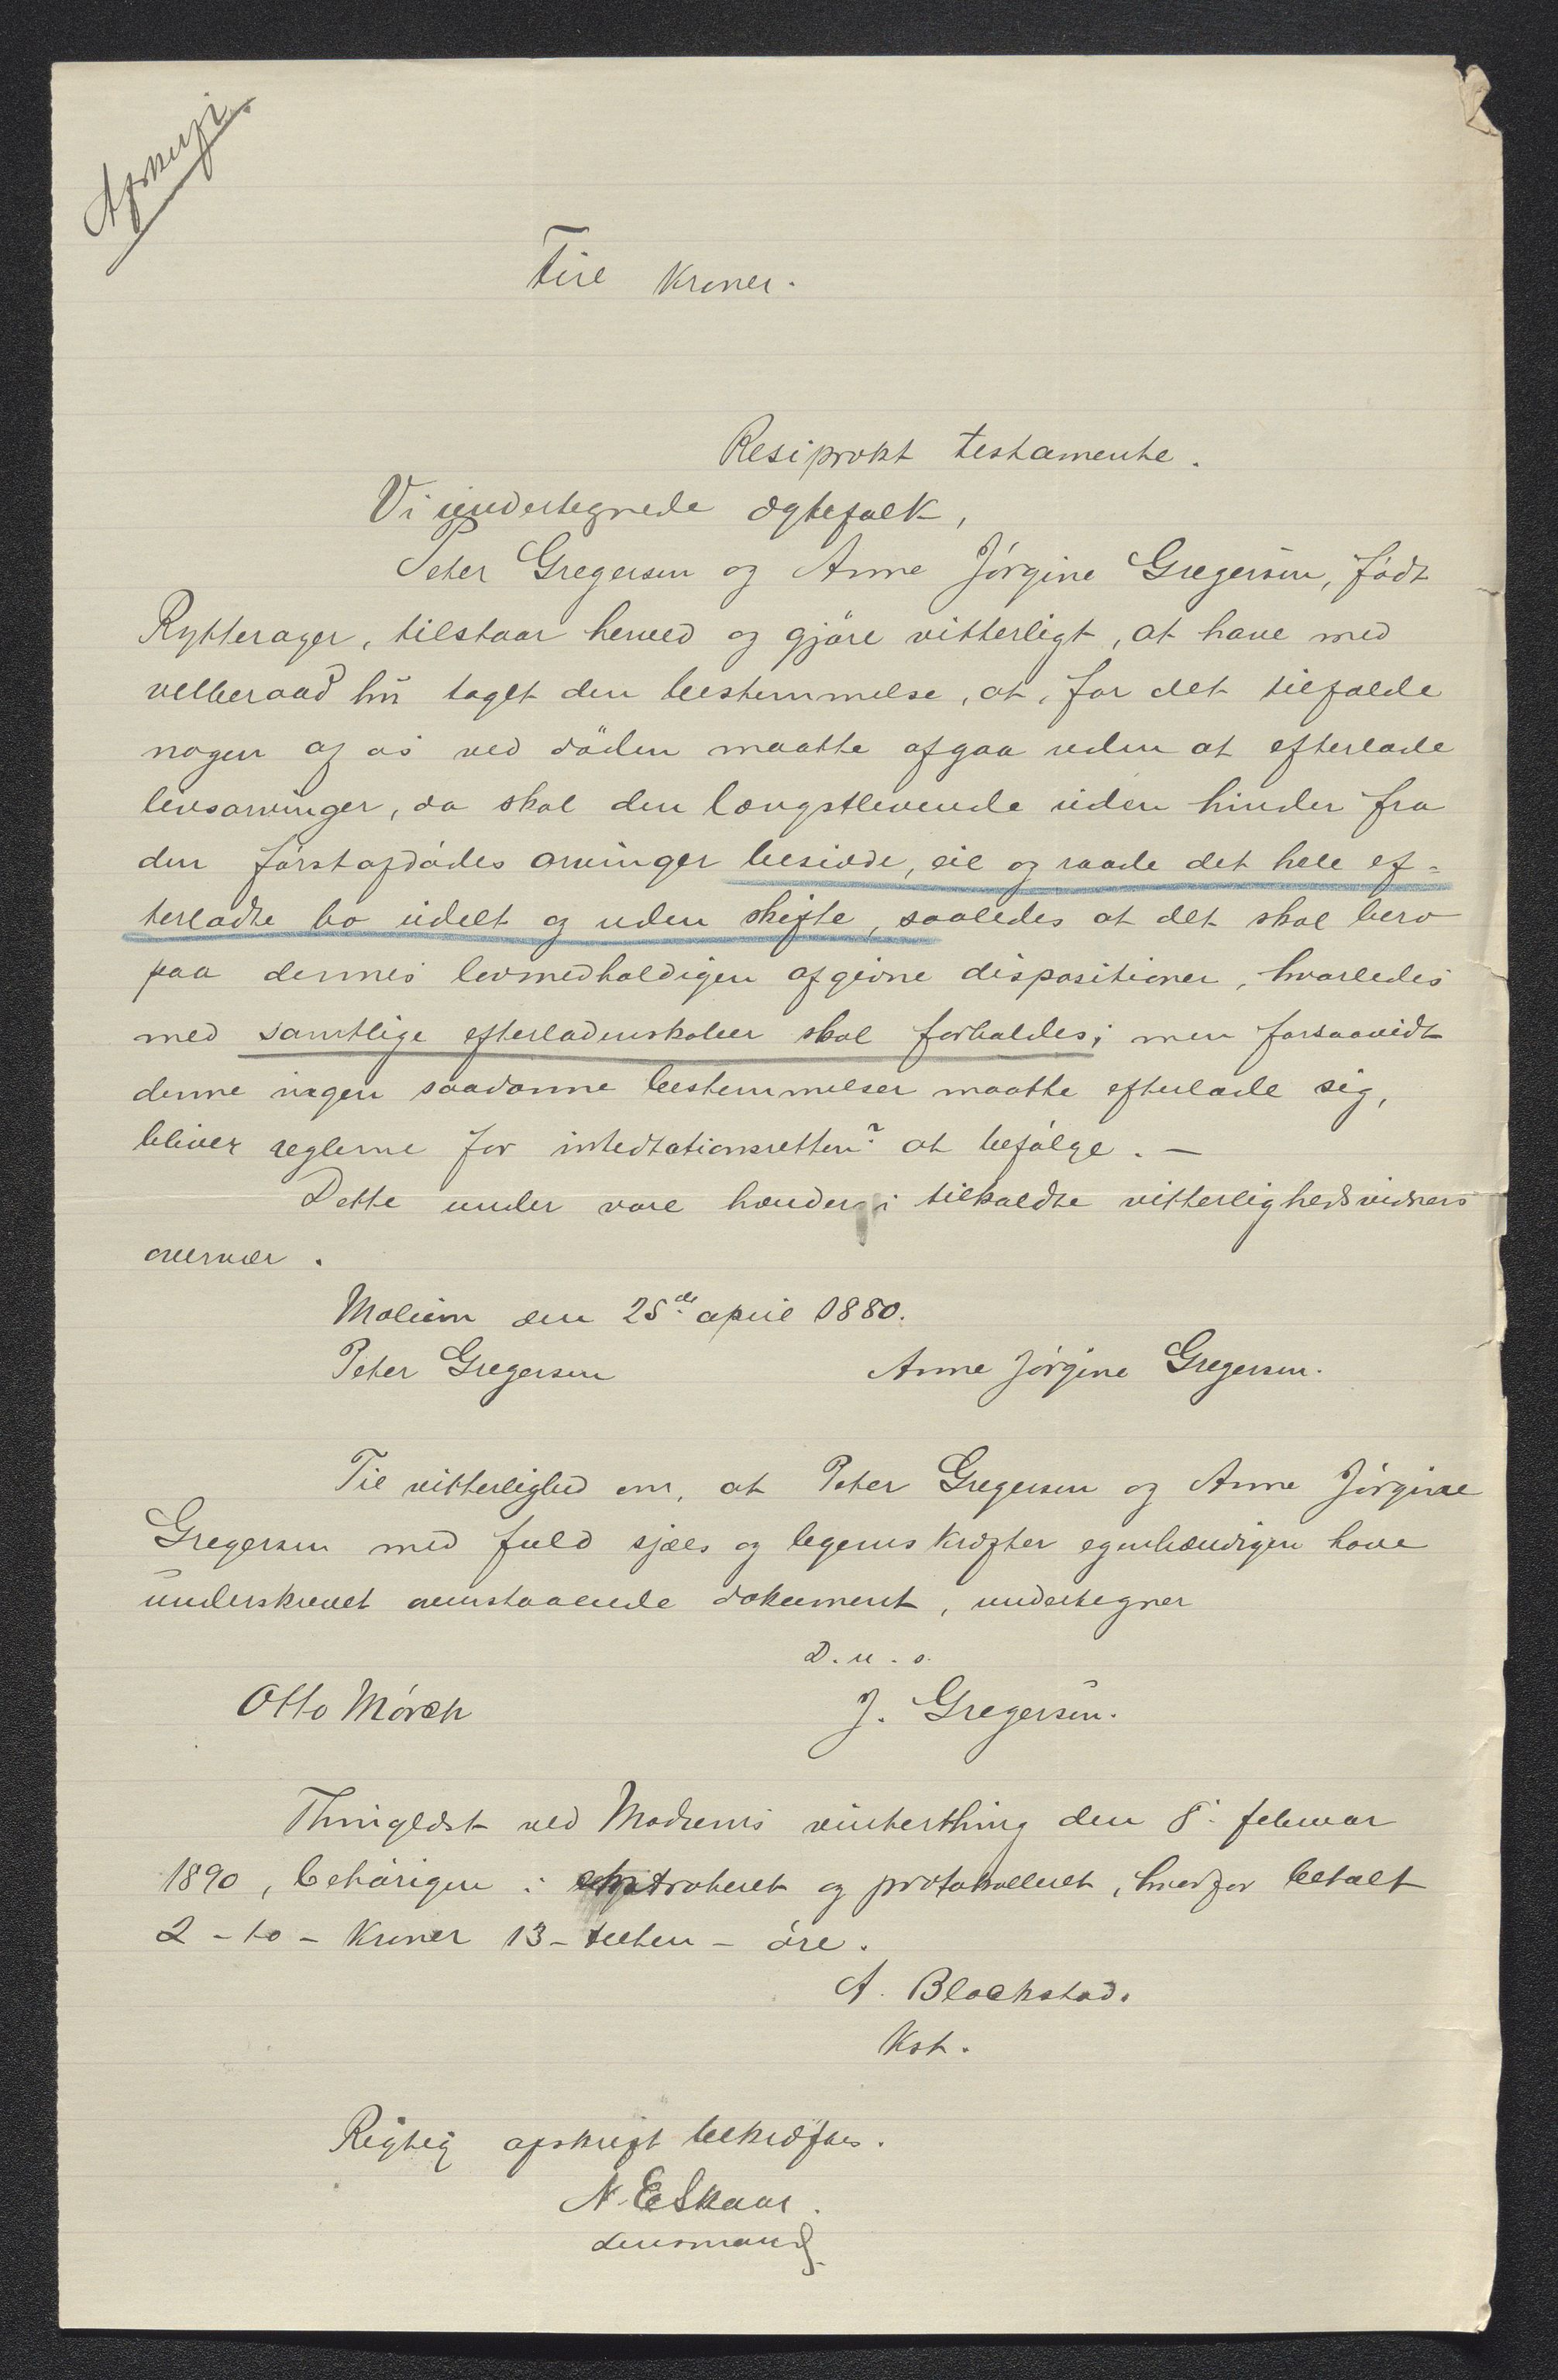 Afskrift.
Fire kroner.
Resiprokt testamente.
Vi undertegnede ægtefolk,
Peter Gregersen og Anne Jörgine Gregersen, född
Rytterager, tilstaar herved og gjöre vitterligt, at have med
velberaad hu taget den bestemmelse, at, for det tilfælde
nogen af os ved döden maatte afgaa uden at efterlade
livsarvinger, da skal den længstlevende uden hinder fra
den förstafdödes arvinger besidde, eie og raade det hele ef-
terladte bo udelt og uden skifte, saaledes at det skal bero
paa dennes lovmedholdigen afgivne dispositioner, hvorledes
med samtlige efterladenskaber skal forholdes; men forsaavidt
denne ingen saadanne bestemmelser maatte efterlade sig,
bliver reglerne for intedtationsretten? at befölge. —
Dette under vore hænder i tilkaldte vitterlighedsvidners
overvær.
Modum den 25de april 1880.
Peter Gregersen Anne Jörgine Gregersen.
Til vitterlighed om, at Peter Gregersen og Anne Jörgine
Gregersen med fuld sjæls og legems kræfter egenhændigen have
underskrevet ovenstaaende dokument, undertegner
D. u. s.
Otto Mörch J. Gregersen.
Thinglæst ved Modums vinterthing den 8. februar
1890, behörigen : extraheret og protokolleret, hvorfor betalt
2 - to - kroner 13 - tretten - öre.
A. Blackstad.
Kst.
Rigtig afskrift bekræftes.
N. E Skaar.
Lensmand.